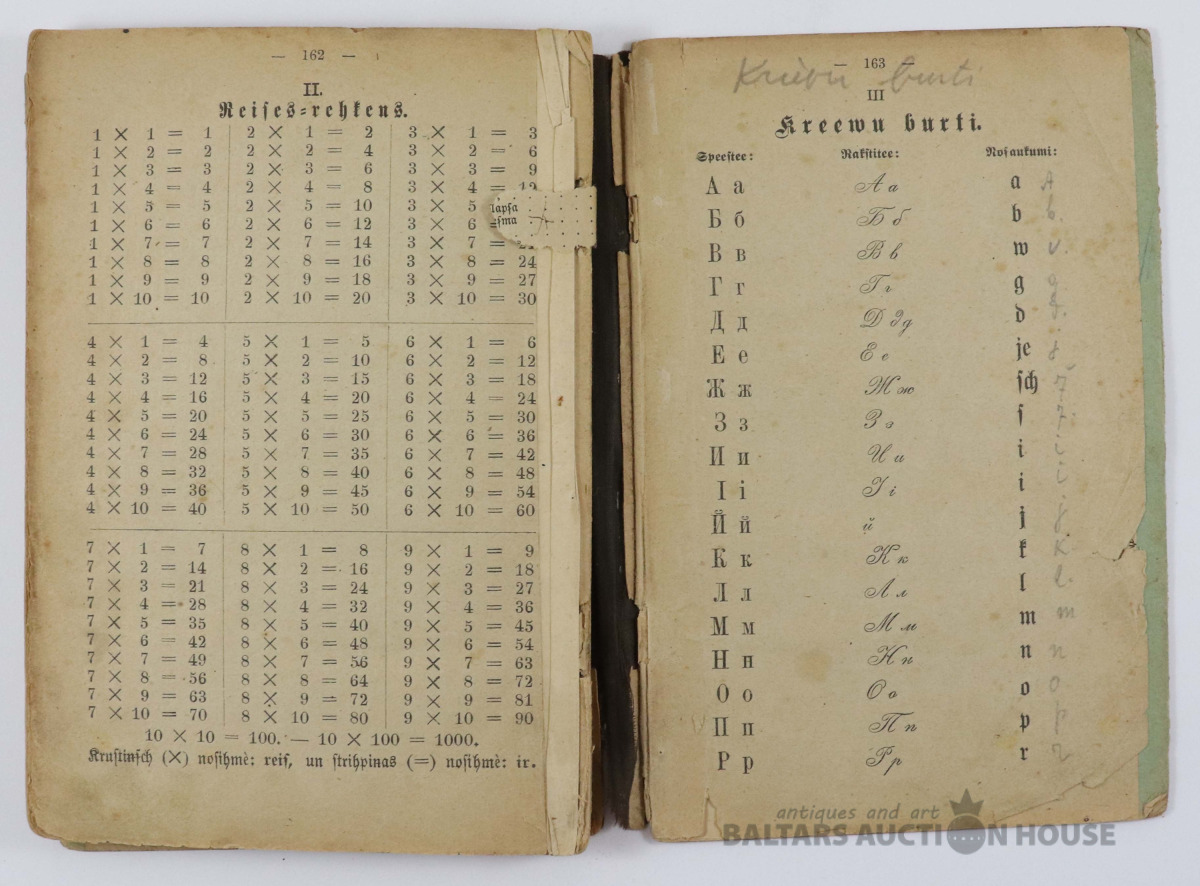 — 162 —
II.
Reiſes-rehķens.
1 × 1 = 1 2 × 1 = 2 3 × 1 = 3
1 × 2 = 2 2 × 2 = 4 3 × 2 = 6
1 × 3 = 3 2 × 3 = 6 3 × 3 = 9
1 × 4 = 4 2 × 4 = 8 3 × 4 = 12
1 × 5 = 5 2 × 5 = 10 3 × 5
1 × 6 = 6 2 × 6 = 12 3 × 6
1 × 7 = 7 2 × 7 = 14 3 × 7 = 21
1 × 8 = 8 2 × 8 = 16 3 × 8 = 24
1 × 9 = 9 2 × 9 = 18 3 × 9 = 27
1 × 10 = 10 2 × 10 = 20 3 × 10 = 30
4 × 1 = 4 5 × 1 = 5 6 × 1 = 6
4 × 2 = 8 5 × 2 = 10 6 × 2 = 12
4 × 3 = 12 5 × 3 = 15 6 × 3 = 18
4 × 4 = 16 5 × 4 = 20 6 × 4 = 24
4 × 5 = 20 5 × 5 = 25 6 × 5 = 30
4 × 6 = 24 5 × 6 = 30 6 × 6 = 36
4 × 7 = 28 5 × 7 = 35 6 × 7 = 42
4 × 8 = 32 5 × 8 = 40 6 × 8 = 48
4 × 9 = 36 5 × 9 = 45 6 × 9 = 54
4 × 10 = 40 5 × 10 = 50 6 × 10 = 60
7 × 1 = 7 8 × 1 = 8 9 × 1 = 9
7 × 2 = 14 8 × 2 = 16 9 × 2 = 18
7 × 3 = 21 8 × 3 = 24 9 × 3 = 27
7 × 4 = 28 8 × 4 = 32 9 × 4 = 36
7 × 5 = 35 8 × 5 = 40 9 × 5 = 45
7 × 6 = 42 8 × 6 = 48 9 × 6 = 54
7 × 7 = 49 8 × 7 = 56 9 × 7 = 63
7 × 8 = 56 8 × 8 = 64 9 × 8 = 72
7 × 9 = 63 8 × 9 = 72 9 × 9 = 81
7 × 10 = 70 8 × 10 = 80 9 × 10 = 90
10 × 10 = 100. — 10 × 100 = 1000.
Kruſtinſch (×) noſihmè: reiſ, un ſtrihpinas (=) noſihmè: ir.
lapſa
— 163 —
Krievu burti
III
Kreewu burti.
Speeſtee: Rakſtitee: Noſaukumi:
А а А а a A
Б б Б б b b.
В в В в w v.
Г г Г г g g
Д д Д д д d d.
Е е Е е je
Ж ж Ж ж ſch ž
З з З з ſ z
И и И и i i
І і І і i i
Й й й j j
К к К к k K
Л л Л л l l.
М м М м m m
Н н Н н n n
О о О о o o
П п П п p p
Р р Р р r r
antiques and art
BALTARS AUCTION HOUSE